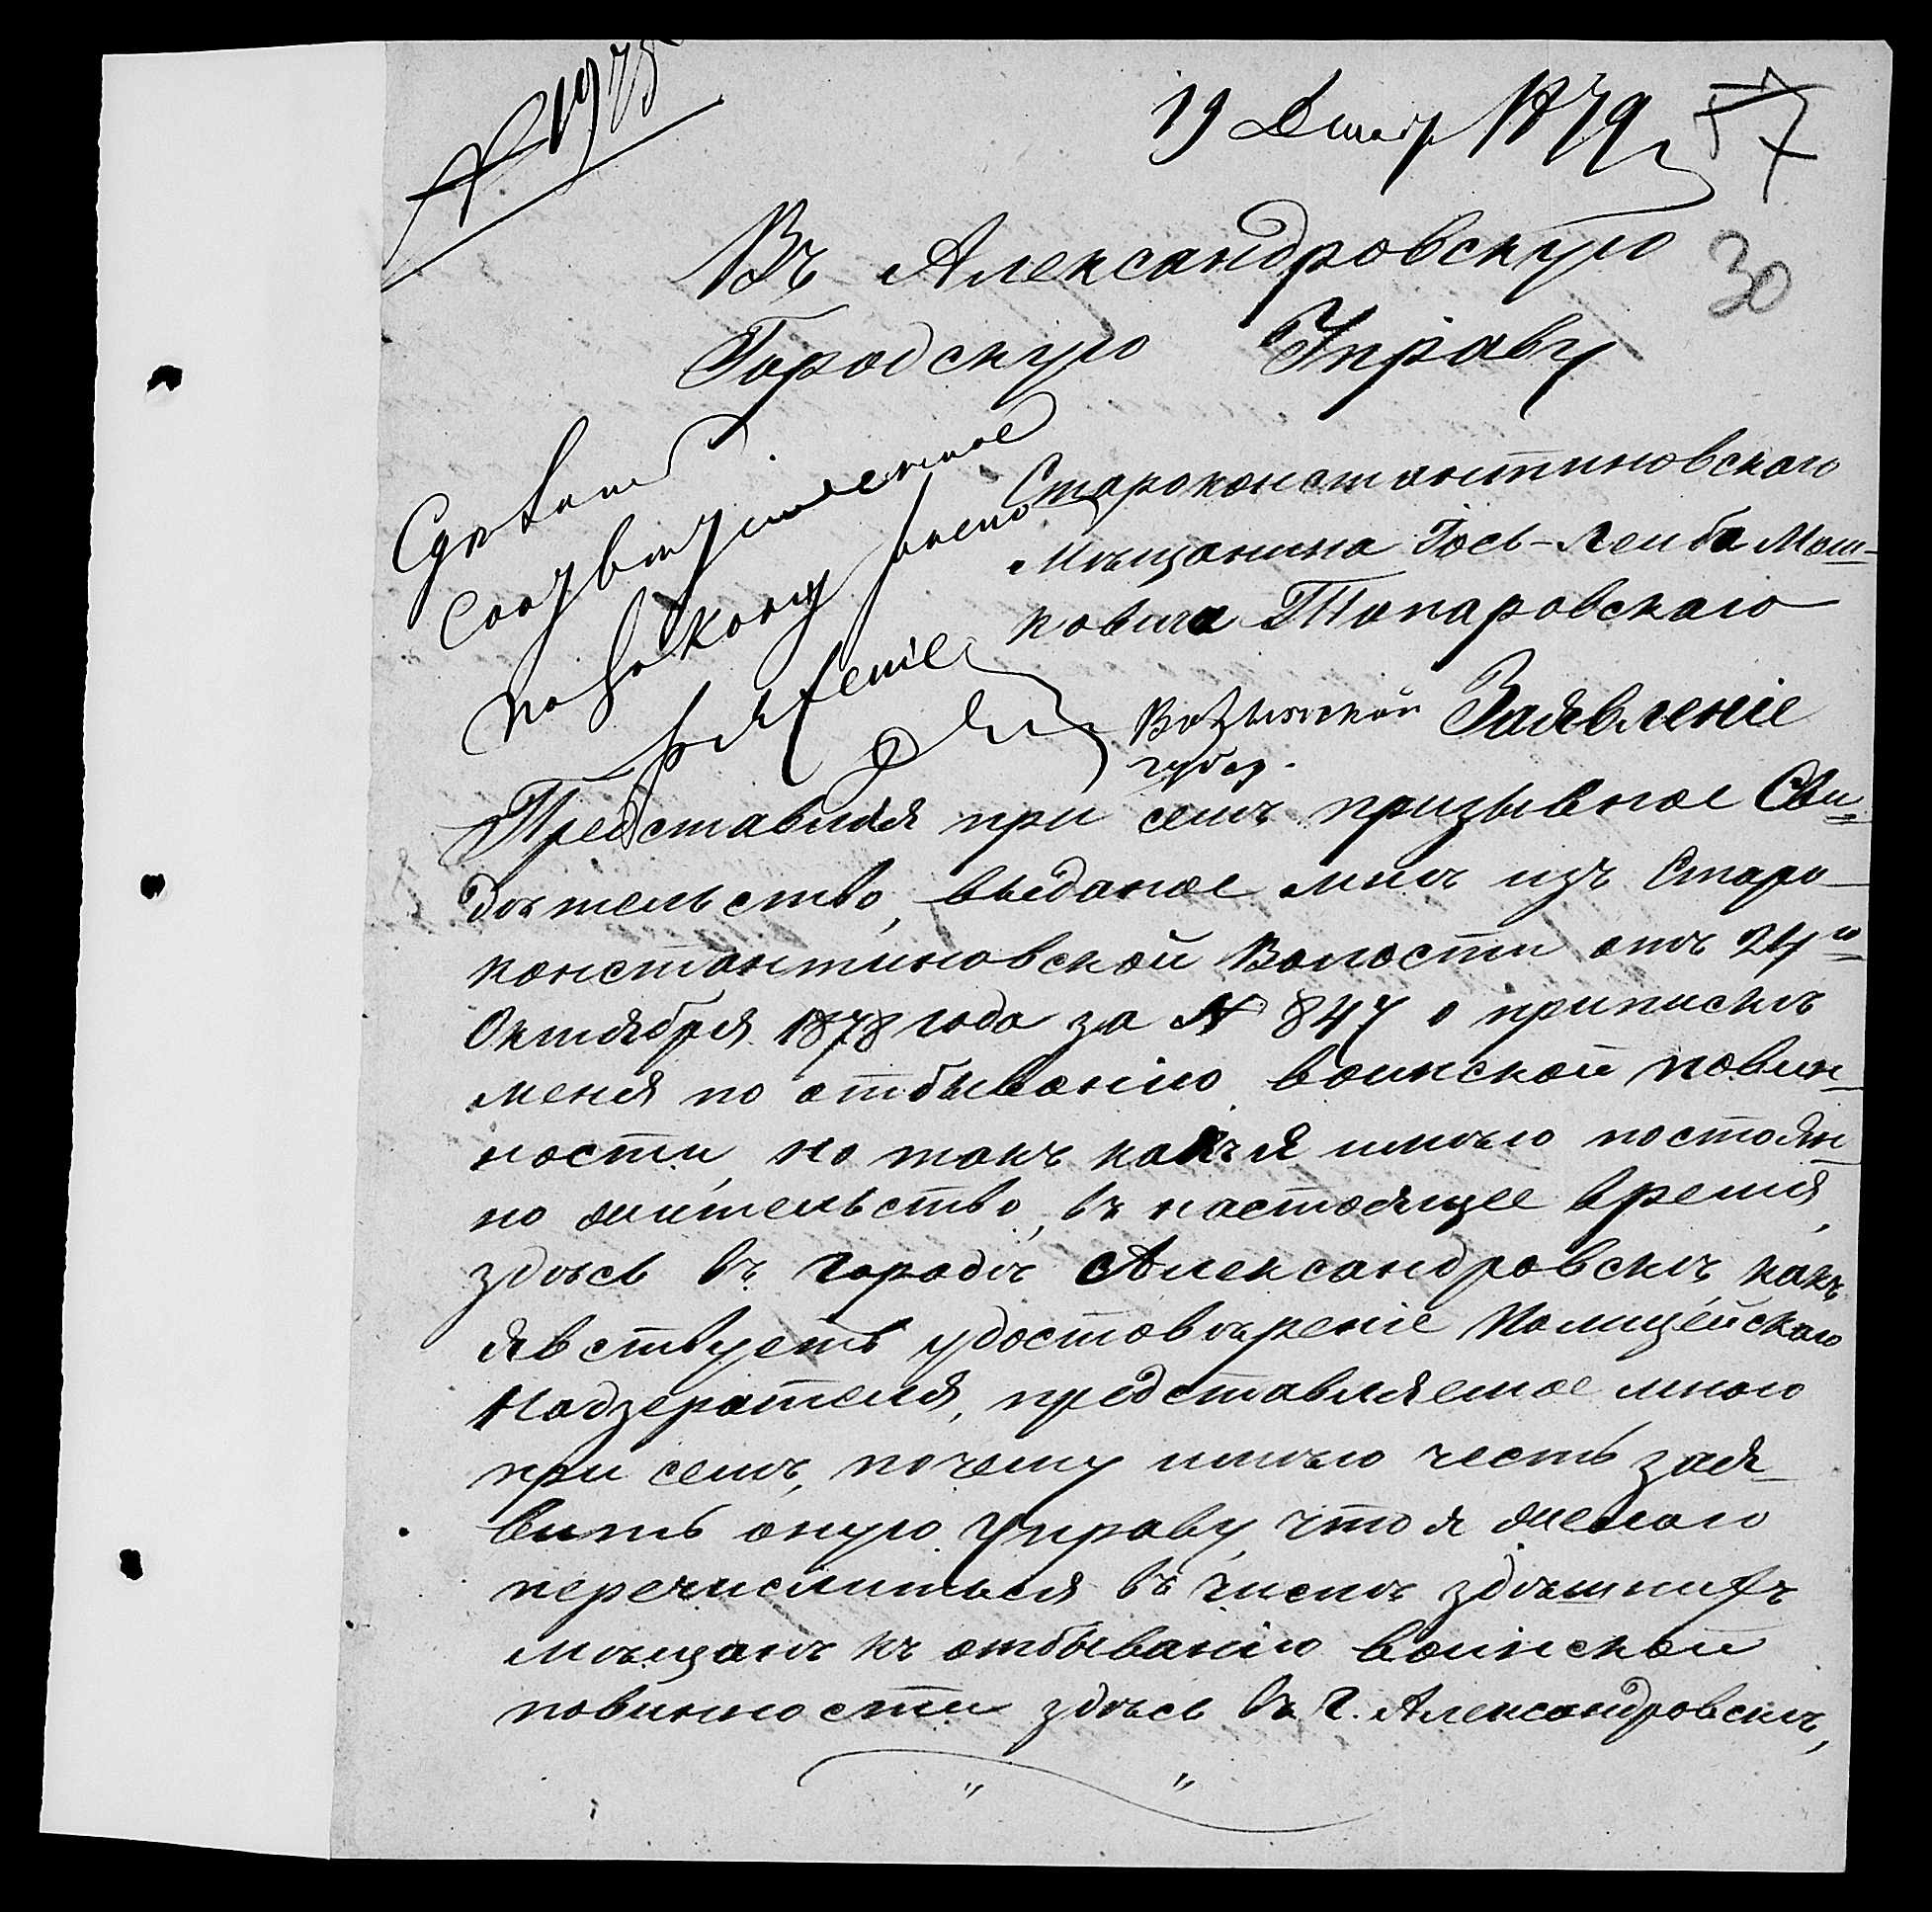 № 1975
19 Декабр 1879 г
57
30
Въ Александровскую
Городскую Управу
Сделать
соотвѣтственное
по закону распо
ряженіе
Староконстантиновскаго
мѣщанина Іось-Лейба Мош-
ковича Топаровскаго
Волынской губер.
Заявленіе
Представляя при семъ призывное Сви-
дѣтельство, выданое мнѣ изъ Старо-
константиновской Волости отъ 24го
Октября 1878 года за № 847 о припискѣ
меня по отбыванію воинской повин-
ности, но такъ какъ я имѣю постоян-
но жительство, въ настоящее время,
здѣсь въ городѣ Александровскѣ, какъ
явствуетъ удостовѣреніе Полицейскаго
Надзерателя, представляемое мною
при семъ, почему имѣю честь зая-
вить оную Управу, что я желаю
перечислиться въ число здѣшнихъ
мѣщанъ къ отбыванію воинской
повинности здѣсь въ г. Александровскѣ,